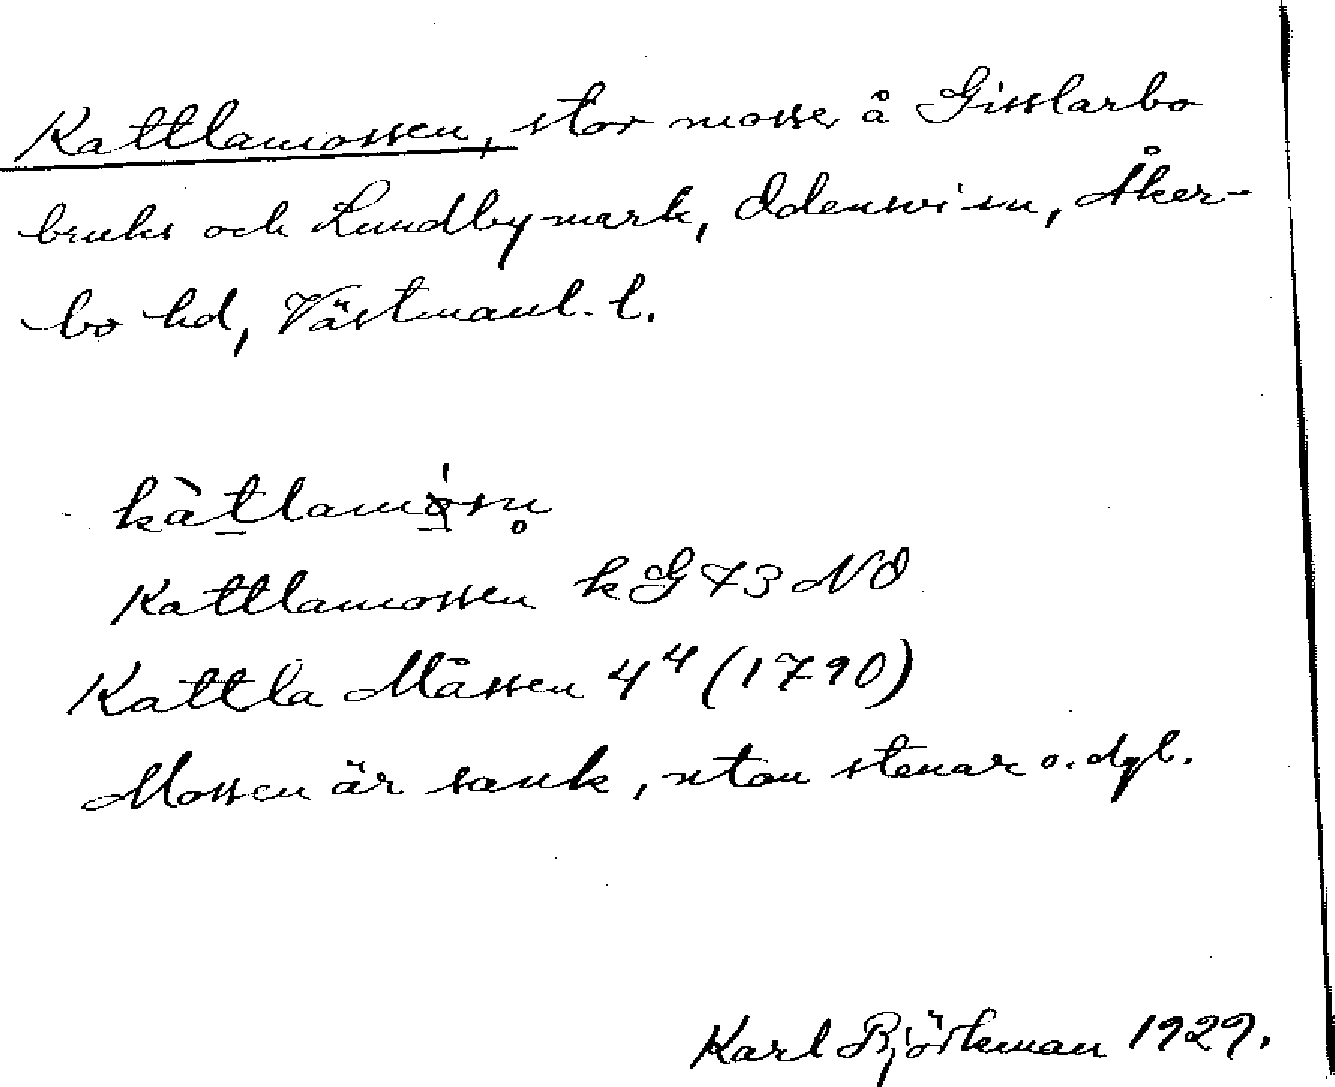 Kattlamossen, stor mosse å Gisslarbo
bruks och Lundby mark, Odensvi sn, Åker-
bo hd, Västmanl. l.
kàtlamósn̥
Kattlamossen k G 73 NO
Kattla Måssen 4⁴ (1790)
Mossen är sank, utan stenar o. dyl.
Karl Björkman 1929.